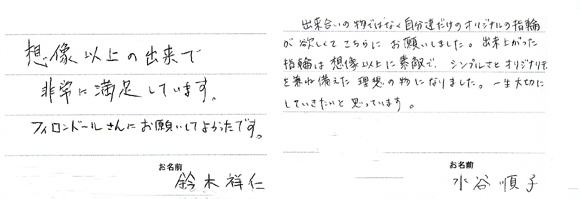 想像以上の出来で
非常に満足しています。
フィロンドールさんにお願いしてよかったです。
お名前
鈴木祥仁
出来合いの物ではなく自分達だけのオリジナルの指輪
が欲しくてこちらに お願いしました。出来上がった
指輪は想像以上に素敵で、シンプルさとオリジナリテ
を兼ね備えた 理想の物になりました。一生大切に
していきたいと思っています。
お名前
水谷順子